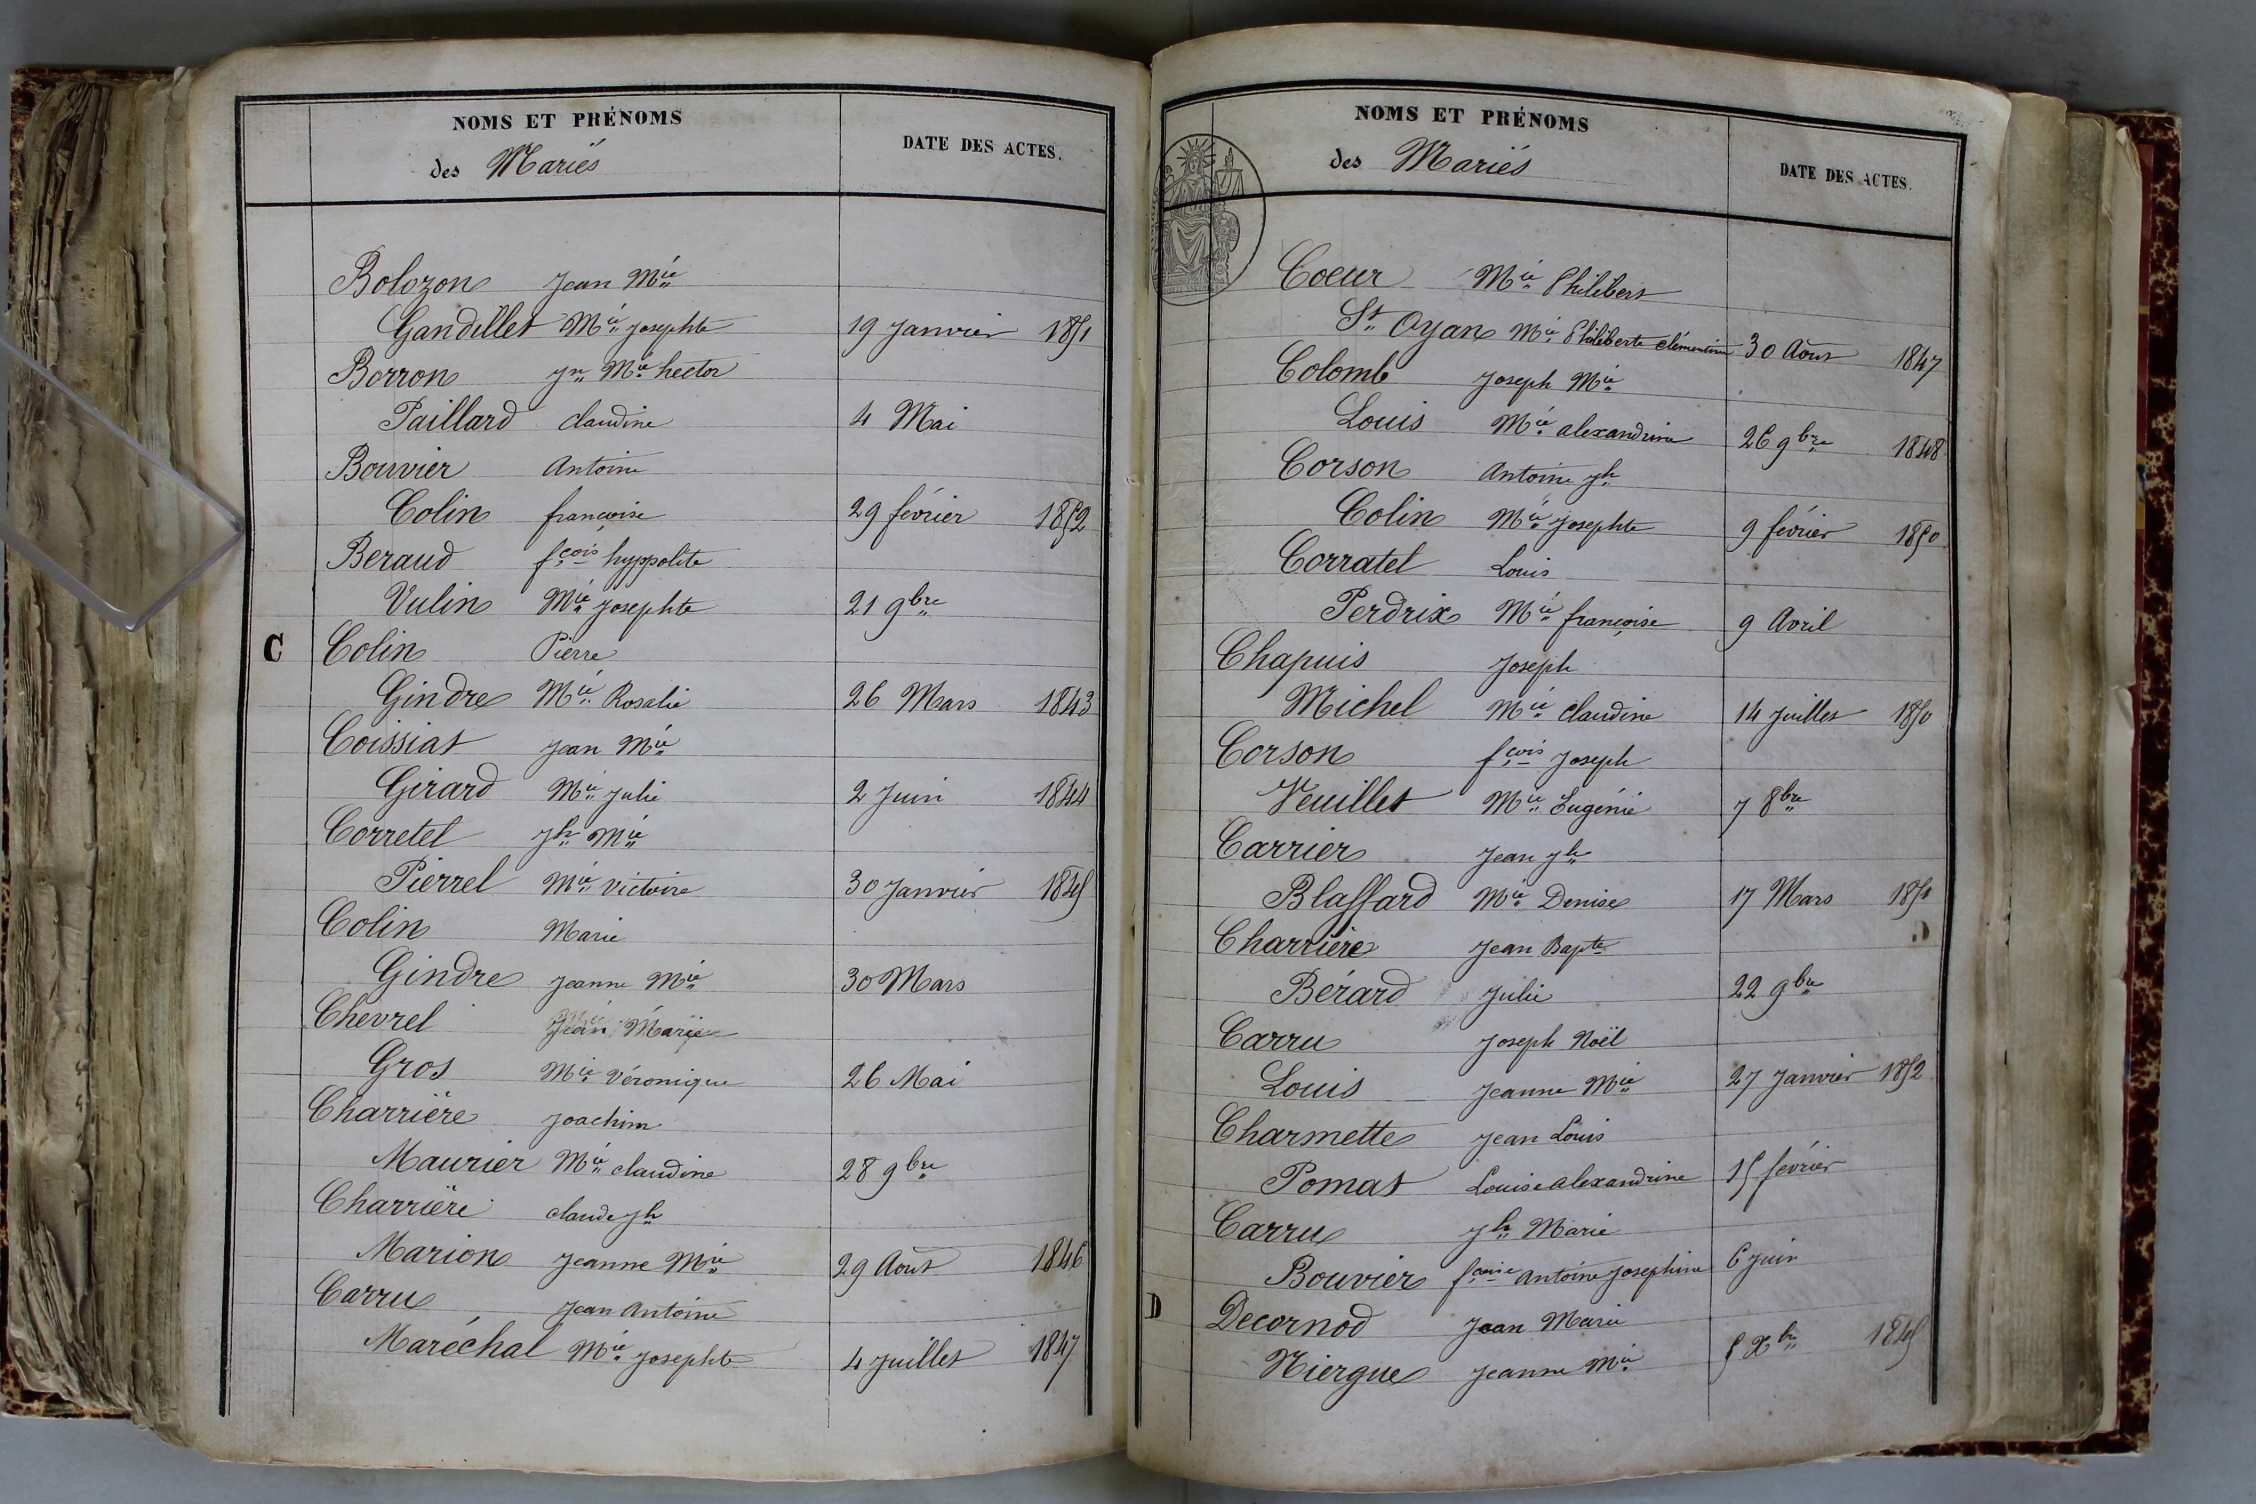 NOMS ET PRÉNOMS
des Mariés
DATE DES ACTES.
Bolozon Jean Mie
Gandillet Mie Josephte 19 Janvier 1851
Borron Jn Mie hector
Paillard Claudine 4 Mai
Bouvier Antoine
Colin françoise 29 février 1852
Beraud fçois hyppolite
Vulin Mie Josephte 21 9bre
C Colin Pierre
Gindre Mie Rosalie 26 Mars 1843
Coissiat Jean Mie
Girard Mie Julie 2 Juin 1844
Corretel Jh Mie
Pierrel Mie Victoire 30 Janvier 1845
Colin Marie
Gindre Jeanne Mie 30 Mars
Chevrel Jean Marie
Gros Mie Véronique 26 Mai
Charrière Joachim
Maurier Mie claudine 28 9bre
Charrière claude Jh
Marion Jeanne Mie 29 Août 1846
Carru Jean Antoine
Maréchal Mie Josephte 4 Juillet 1847
NOMS ET PRÉNOMS
des Mariés
DATE DES ACTES.
Coeur Mie Philibert
St Oyan Mie Philiberte clémentine 30 Août 1847
Colomb Joseph Mie
Louis Mie alexandrine 26 9bre 1848
Corson Antoine Jh
Colin Mie Josephte 9 février 1850
Corratel Louis
Perdrix Mie françoise 9 Avril
Chapuis Joseph
Michel Mie Claudine 14 Juillet 1850
Corson fçois Joseph
Veuillet Mie Eugénie 7 8bre
Carrier Jean Jh
Blaffard Mie Denise 17 Mars 1851
Charrière Jean Bapte
Bérard Julie 22 9bre
Carru Joseph Noël
Louis Jeanne Mie 27 Janvier 1852
Charmette Jean Louis
Pomat Louise alexandrine 15 février
Carru Jh Marie
Bouvier fçoise Antoine Josephine 6 Juin
D Decornod Jean Marie
Niergue Jeanne Mie 5 Xbre 1845